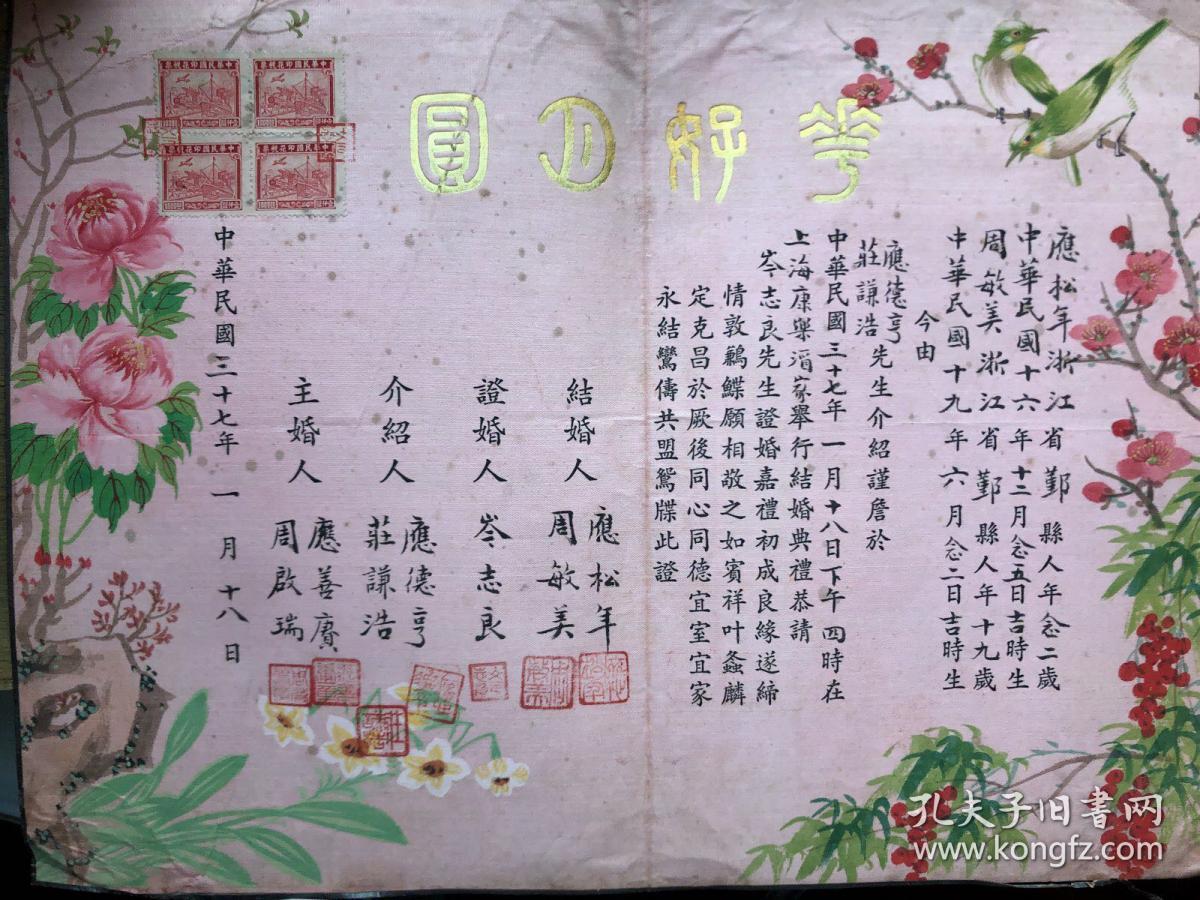 花好月圓
應松年浙江省鄞縣人年念二歲
中華民國十六年十二月念五日吉時生
周敏美浙江省鄞縣人年十九歲
中華民國十九年六月念二日吉時生
今由
應德亨
莊謙浩先生介紹謹詹於
中華民國三十七年一月十八日下午四時在
上海康樂酒家舉行結婚典禮恭請
岑志良先生證婚嘉禮初成良緣遂締
情敦鶼鰈願相敬之如賓祥叶螽麟
定克昌於厥後同心同德宜室宜家
永結鸞儔共盟鴛牒此證
結婚人 應松年 周敏美
證婚人 岑志良
介紹人 應德亨 莊謙浩
主婚人 應善賡 周啟瑞
中華民國三十七年一月十八日
中華民國印花稅票
中華民國印花稅票
中華民國印花稅票
中華民國印花稅票
孔夫子旧书网
www.kongfz.com